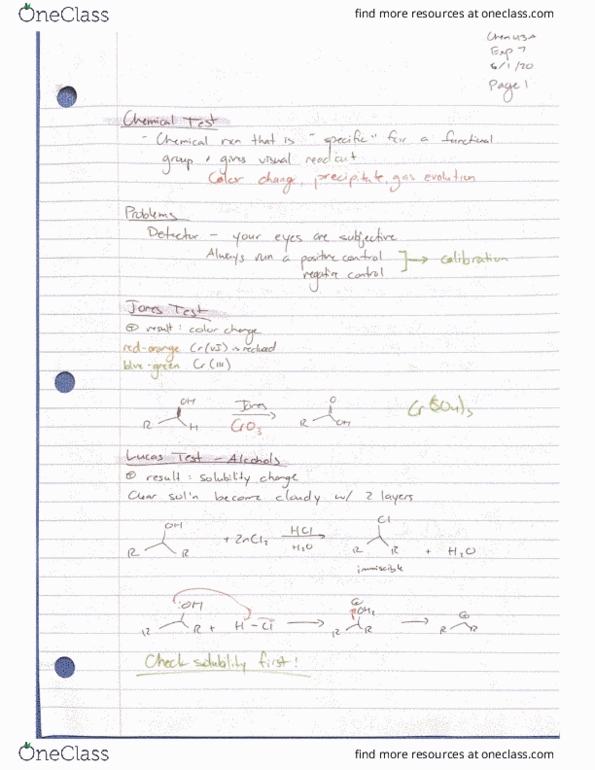 OneClass
find more resources at oneclass.com
Exp 7
6/1/20
Page 1
Chemical Test
- Chemical rxn that is "specific" for a functional
group, gives visual readout
Color change, precipitate, gas evolution
Problems
Detector - your eyes are subjective
Always run a positive control
negative control
→ calibration
Jones Test
⊕ result: color change
red-orange Cr(VI) → reduced
blue-green Cr(III)
OH
R
H
Jones
CrO3
O
R
OH
Lucas Test - Alcohols
⊕ result: solubility change
Clear sol'n become cloudy w/ 2 layers
OH
R
R
+ ZnCl2
HCl
H2O
Cl
R
R
+ H2O
immiscible
:OH
R
R
+ H-Cl
→
⊕
OH2
R
R
→
⊕
R
R
Check solublity first!
OneClass
find more resources at oneclass.com